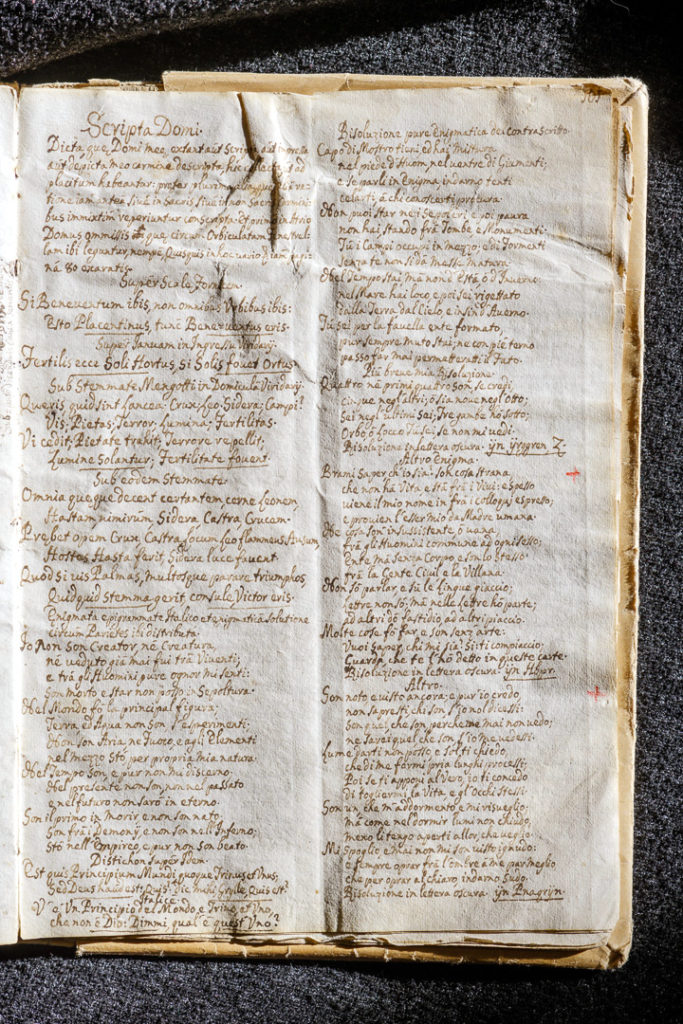 Scripta Domi.
Dicta que, Domi meo, extant aut Scripta aut impressa
aut depicta meo carmine descripta, hic ad
placitum habeantur: preter plurima
tione iam antea sive in Sacris sive in non Sacris Carmini
bus immixtim reperiuntur conscripta: et primo in Atrio
Domus omnibus que, circum Orbiculatam
lam ibi leguntur, nempe, Quisquis in hoc vario iam pagi
nâ 80 exaratis.
Super Scale Fornicem.
Si Beneventum ibis, non omnibus Urbibus ibis:
Esto Placentinus, tunc Beneventus eris.
Super Ianuam in Ingressu Viridarij.
Fertilis ecce Soli Hortus, si Solis fovet Ortus.
Sub Stemmate Mengotti in Domicula Viridarij.
Queris quid sint Lancea: Crux: Leo: Sidera; Campi?
Vis; Pietas; Terror; Lumina; Fertilitas.
Vi cedit; Pietate trahit; Terrore repellit;
Lumine Solantur; Fertilitate fovent.
Sub eodem Stemmate.
Omnia que, que decent certantem, cerne Leonem,
Hastam nimirum Sidera, Castra, Crucem.
Prebet opem Crux, Castra locum, Leo flammeus Ausum,
Hostes Hasta ferit, Sidera luce favent.
Quod si vis Palmas, multosque parare triumphos,
Quidquid Stemma gerit, consule, Victor eris.
Enigmata epigrammate Italico et enigmaticâ Solutione
circum Parietes ibi distributa.
Io Non Son Creator, nè Creatura,
nè veduto già mai fui trà Viventi;
e trà gli Huomini pure ognor mi senti:
Son morto e star non posso in Sepoltura.
Nel Mondo fo la principal figura;
Terra ed Aqua non son, s'esperimenti:
Non son Aria, nè Fuoco, e agli Elementi
nel mezzo Stò per propria mia natura.
Nel Tempo Son, e pur non mi discerno.
Nel presente non son, non nel passato
e nel futuro non sarò in eterno.
Son il primo in Morir e non son nato;
Son frà i Demonÿ, e non son nell'Inferno;
Stò nell'Empireo, e pur non son beato.
Distichon Super Idem.
Est quis Principium Mundi quoque Trinus et Unus,
Sed Deus haud est: Quis? Dic mihi Grylle, Quis est?
Italice
V'è Un Principio del Mondo e Trino, et Uno
che non è Dio: Dimmi, qual'è quest'Uno?
Risoluzione pure Enigmatica del contrascritto.
Capo di Mostro tieni, ed hai mistura
nel piede d'Huom, nel ventre di Giumenti;
e se parli in Enigma, indarno tenti
celarti, à chi conoscerti procura.
Non puoi Star ne i Sepolcri e poi paura
non hai Stando frà Tombe e Monumenti.
Tù i Campi occupi in mezzo; e di Formenti
Senza te non si dà messe matura.
Nel Tempo Stai, ma non d'Està, ò d'Inverno:
nel Mare hai loco, e poi sei rigettato
dalla Terra, dal Cielo, e insin d'Averno.
Tù sei per la favella ente formato,
pur sempre Muto Stai; ne con piè terno
passo far mai permetterati il Fato.
Più breve mia Risoluzione.
Quattro nè primi quattro son, se credi,
cinque negl'altri; ò sia nove negl'otto;
Sei negl'ultimi sai; Tre gambe hò sotto;
Orbo ò Losco Tu sei, se non mi vedi.
Risoluzione in lettera oscura. ÿn ÿrogren Z.
Altro Enigma.
Brami Saper chi io sia? Son cosa strana,
che non hà Vita e stà frà i Vivi; e Spesso
viene il mio nome in frà i colloqaj espresso,
e provien l'esser mio da Madre umana.
Ne cosa son insussistente, ò vana,
frà gl'Huomini commune ad ogni sesso;
Ente mà Senza Corpo; e son lo Stesso
frà la Gente Civil e la Villana.
Non sò parlar, e sù le Lingue piaccio;
Lettre non sò, mà nelle Lettre hò parte;
ad altri dò fastidio, ad altri piaccio.
Molte cose fò far, e son senz'arte:
Vuoi Saper, chi mi sia? Si ti compiaccio;
Guarda, che te l'hò detto in queste carte.
Risoluzione in lettera oscura. ÿn Abpr.
Altro.
Son noto, e visto ancora; e pur io credo
non sapresti chi son, s'io nol dicessi:
Son quel, che son, perche me mai non vedo;
ne sarei quel che son, s'io me vedessi.
Lume, parti non posso, e sol ti chiedo,
che di me formi pria lunghi processi;
Poi se ti apponi al Vero, io ti concedo
di togliermi la Vita, e gl'Occhi stessi.
Son un, che m'addormento e mi risveglio;
mà come nel dormir lumi non chiudo,
meno li tengo aperti allor, che veglio.
Mi Spoglio e mai non mi son visto ignudo;
e sempre oprar frà l'ombre à me par meglio,
che per oprar al chiaro, indarno sudo.
Risoluzione in lettera oscura. ÿn Pnagrÿn.